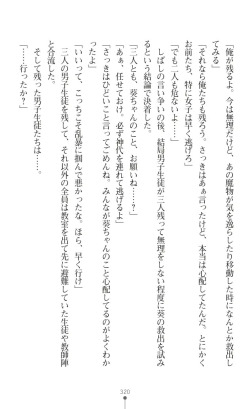 「俺が残るよ。今は無理だけど、あの魔物が気を逸らしたり移動した時になんとか救出し
てみる」
「それなら俺たちも残ろう。さっきはあぁ言ったけど、本当は心配してたんだ。とにかく
お前たち、特に女子は早く逃げろ」
「でも二人も危ないよ……」
しばしの言い争いの後、結局男子生徒が三人残って無理をしない程度に葵の救出を試み
るという結論で決着した。
「三人とも、葵ちゃんのこと、お願いね……」
「あぁ、任せておけ。必ず神代を連れて逃げるよ」
「さっきはひどいこと言ってごめんね。みんなが葵ちゃんのこと心配してるのがよくわか
ったよ」
「いいって、こっちこそ乱暴に掴んで悪かったな。ほら、早く行け」
三人の男子生徒を残して、それ以外の全員は教室を出て先に避難していた生徒や教師陣
と合流した。
そして残った男子生徒たちは……。
「……行ったか？」
320